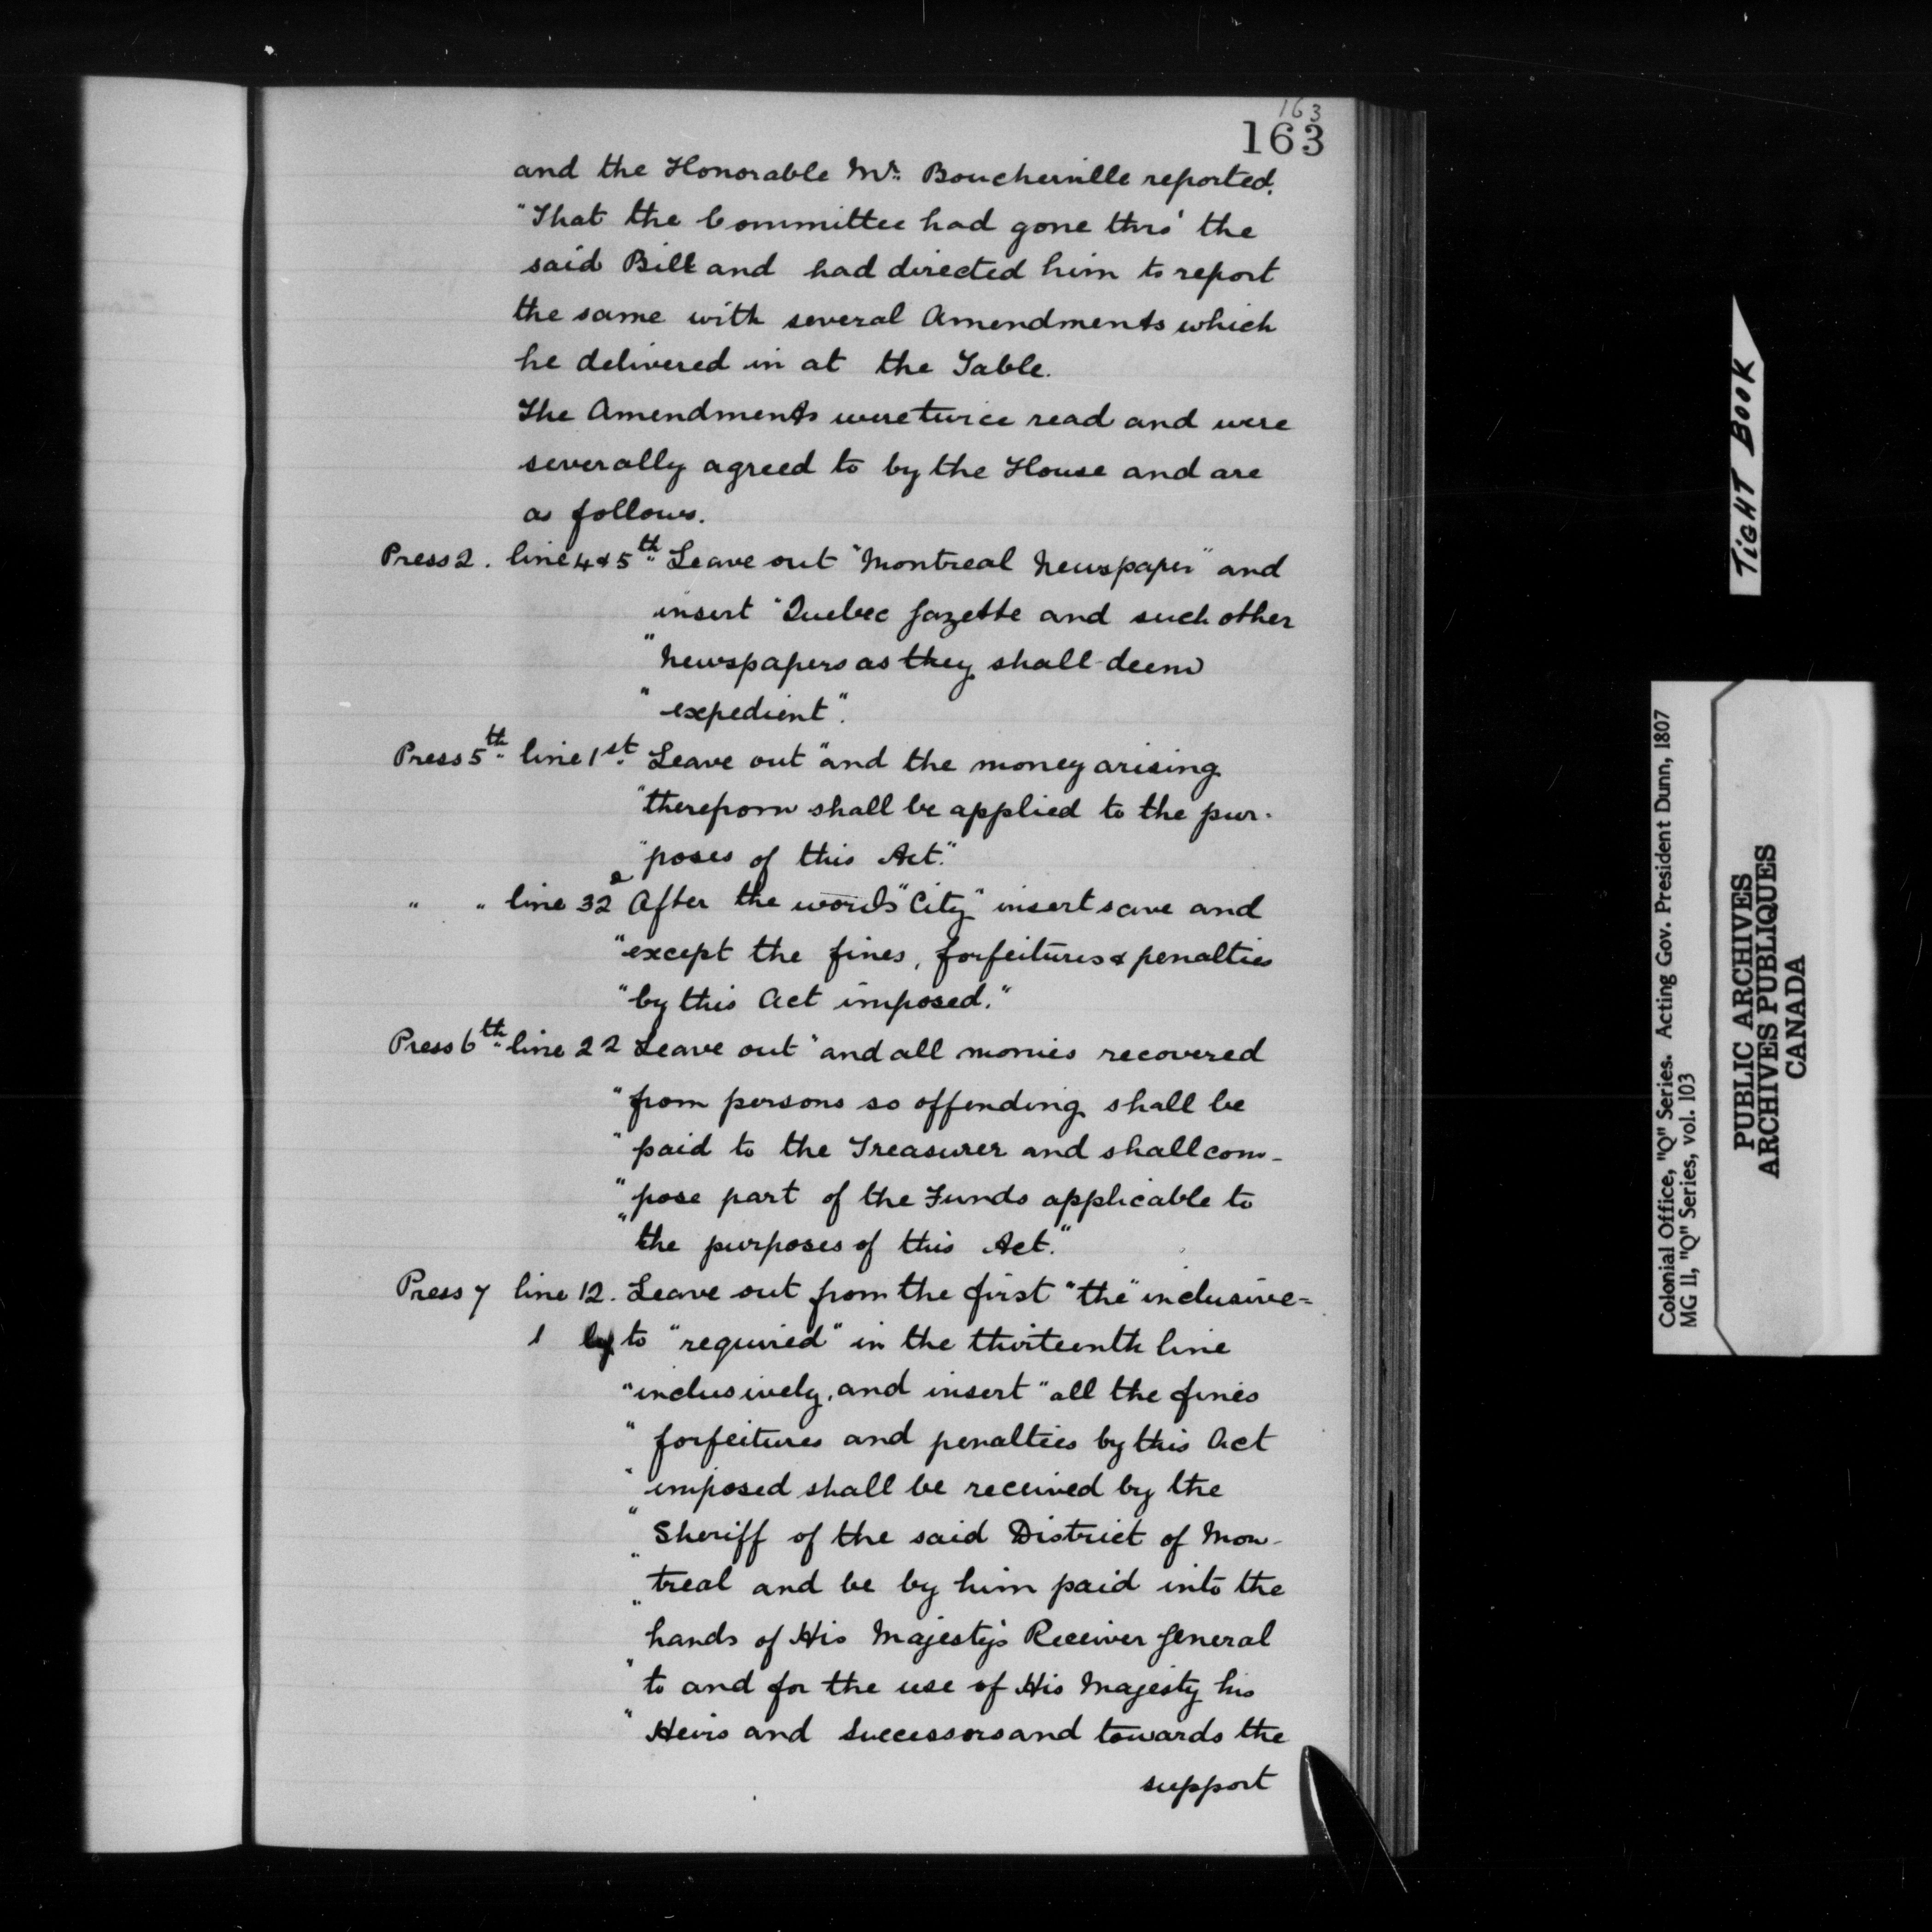 163
163
and the Honorable Mr. Boucherville reported.
"That the Committee had gone thro' the
said Bill and had directed him to report
the same with several Amendments which
he delivered in at the Table.
The Amendments were twice read and were
severally agreed to by the House and are
as follows.
Press 2. line 4 & 5th Leave out "Montreal Newspaper" and
insert "Quebec Gazette and such other
"Newspapers as they shall deem
"expedient".
Press 5th line 1st. Leave out "and the money arising
"therefrom shall be applied to the pur-
"poses of this Act."
" " line 32 After the words "City" insert save and
"except the fines, forfeitures & penalties
"by this Act imposed."
Press 6th line 22 Leave out "and all monies recovered
"from persons so offending shall be
"paid to the Treasurer and shall com-
"pose part of the Funds applicable to
"the purposes of this Act."
Press 7 line 12. Leave out from the first "the" inclusive=
ly to "required" in the thirteenth line
"inclusively, and insert "all the fines
"forfeitures and penalties by this Act
"imposed shall be received by the
"Sheriff of the said District of Mon-
"treal and be by him paid into the
"hands of His Majesty's Receiver General
"to and for the use of His Majesty his
"Heirs and Successors and towards the
support
TIGHT BOOK
Colonial Office, "Q" Series. Acting Gov. President Dunn, 1807
MG 11, "Q" Series, vol. 103
PUBLIC ARCHIVES
ARCHIVES PUBLIQUES
CANADA